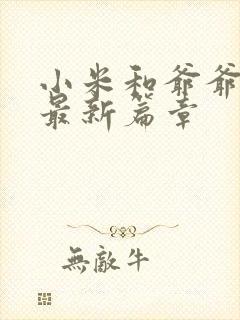 小米和爷爷
最新篇章
無敵牛